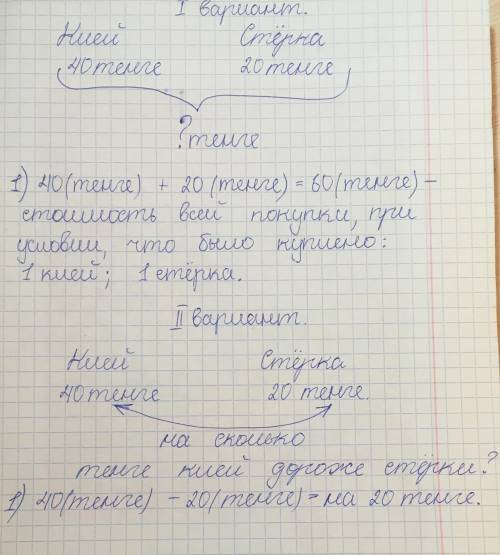 I вариант.
Клей Стёрка
40 тенге 20 тенге
? тенге
1) 40 (тенге) + 20 (тенге) = 60 (тенге) –
стоимость всей покупки, при
условии, что было куплено:
1 клей; 1 стёрка.
II вариант.
Клей Стёрка
40 тенге 20 тенге.
на сколько
тенге клей дороже стёрки?
1) 40 (тенге) – 20 (тенге) = на 20 тенге.